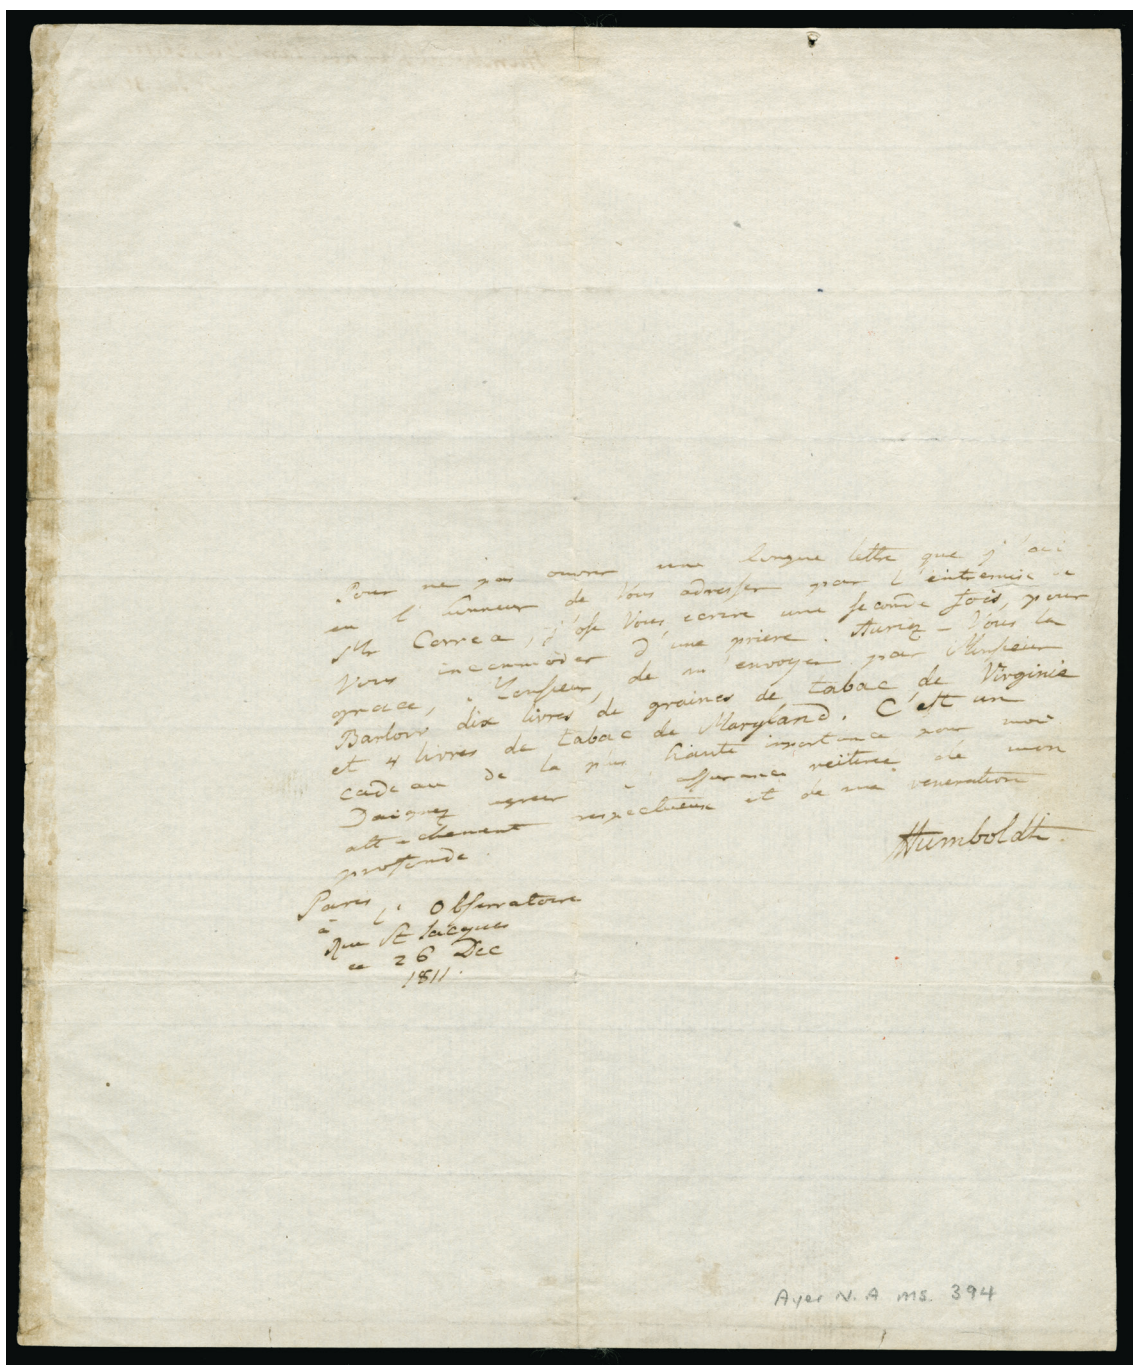 Pour ne pas ouvrir une longue lettre que j'ai
eu l'honneur de Vous adresser par l'entremise de
Mr Correa, j'ose Vous ecrire une seconde fois, pour
Vous incommoder d'une priere. Auriez-Vous la
grace, Monsieur, de m'envoyer par Monsieur
Barlow dix livres de graines de tabac de Virginie
et 4 livres de tabac de Maryland. C'est un
cadeau de la plus haute importance pour moi
Daignez agreer l'assurance reiteree de mon
attachement respectueux et de ma veneration
profonde.
Humboldt.
Paris
à l'Observatoire
Rue St Jacques
ce 26 Dec
1811.
Ayer N. A ms. 394